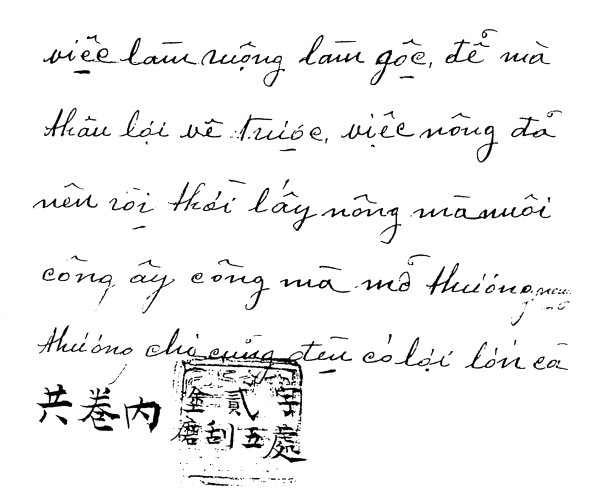 việc làm ruộng làm gốc, để mà
thâu lợi về trước, việc nông đã
nên rồi thời lấy nông mà nuôi
công ấy công mà mở thương
thương cho cũng đều có lợi lớn cả
共卷內
字處 貳五 刮 磨